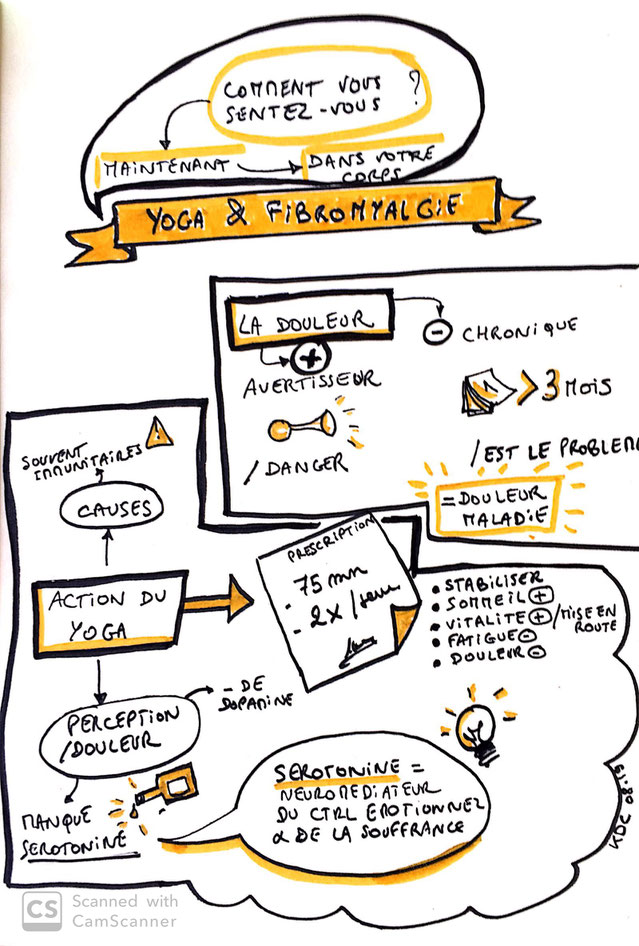 COMMENT VOUS
SENTEZ-VOUS ?
MAINTENANT
DANS VOTRE
CORPS
YOGA & FIBROMYALGIE
LA DOULEUR
- CHRONIQUE
+
AVERTISSEUR
/DANGER
> 3 MOIS
/EST LE PROBLEME
= DOULEUR
MALADIE
SOUVENT
IMMUNITAIRES
!
CAUSES
ACTION DU
YOGA
PRESCRIPTION
- 75 mn
- 2x/sem
• STABILISER
• SOMMEIL +
• VITALITE + /MISE EN
ROUTE
• FATIGUE -
• DOULEUR -
PERCEPTION
/DOULEUR
- DE
DOPAMINE
MANQUE
SEROTONINE
SEROTONINE =
NEUROMEDIATEUR
DU CTRL EMOTIONNEL
& DE LA SOUFFRANCE
KDC 08.19
CS Scanned with
CamScanner